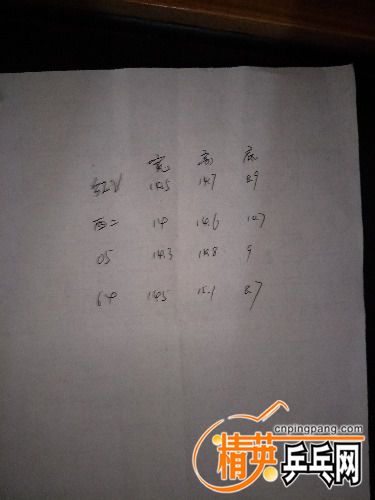 宽 高 底
红V 14.5 14.7 8.9
西二 14 14.6 10.7
05 14.3 14.8 9
64 14.5 15.1 8.7
cnpingpang.com
精英乒乓网